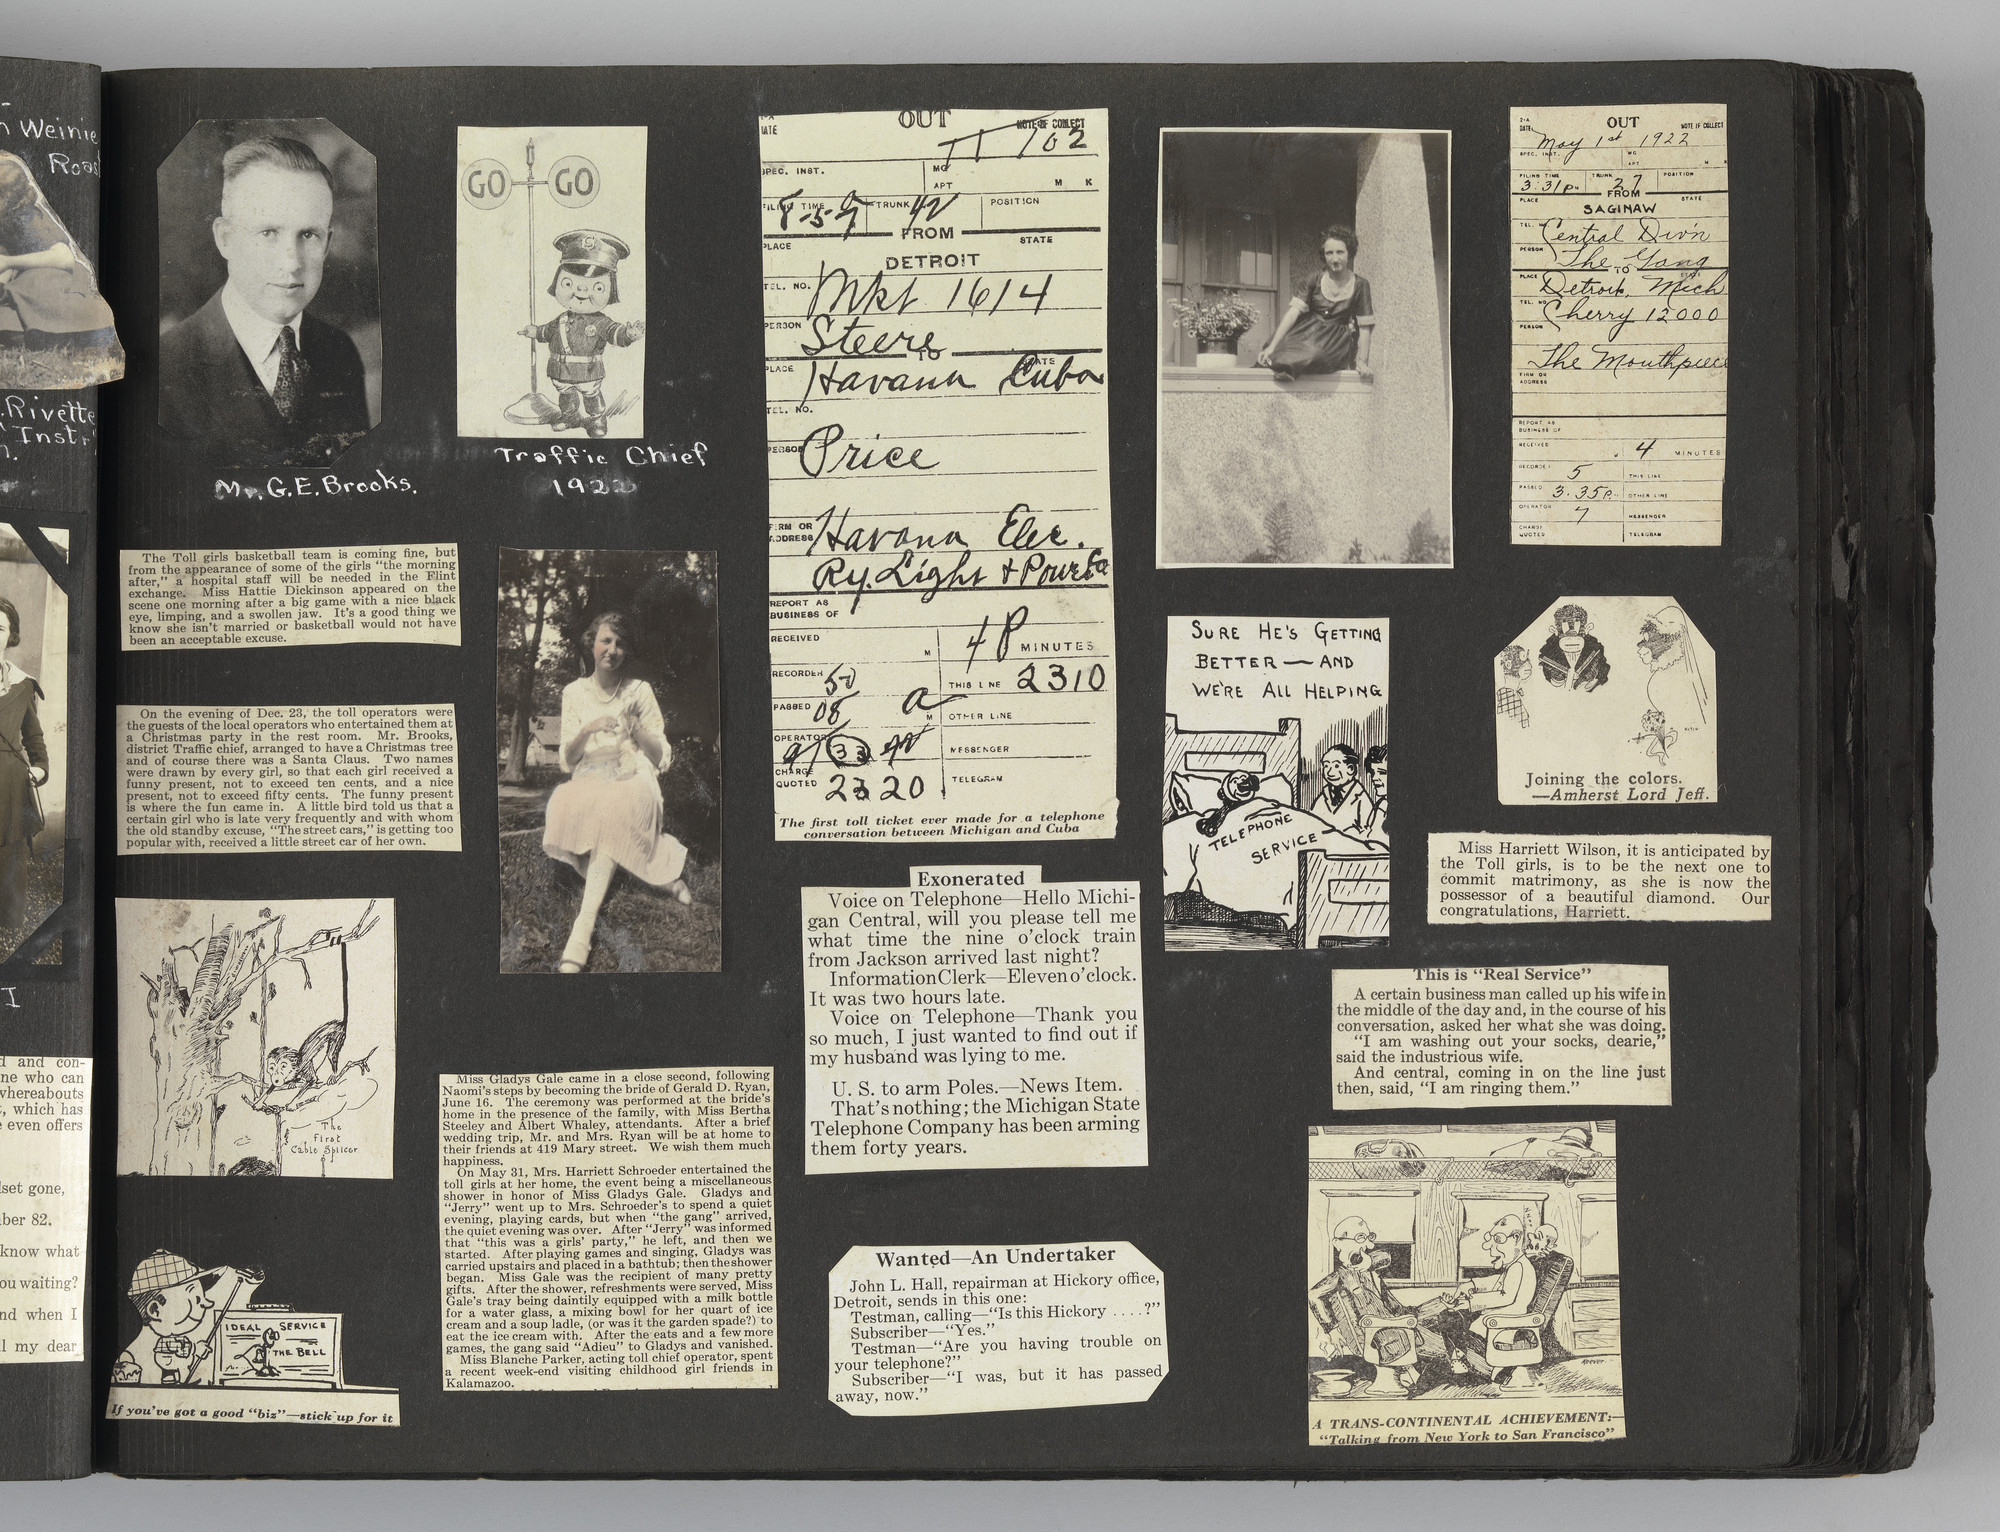 Weinie
Roas
.Rivette
Instr
I
d and con-
ne who can
whereabouts
t, which has
e even offers
lset gone,
ber 82.
know what
ou waiting?
nd when I
ll my dear
Mr. G.E. Brooks.
GO GO
Traffic Chief
1922
The Toll girls basketball team is coming fine, but
from the appearance of some of the girls "the morning
after," a hospital staff will be needed in the Flint
exchange. Miss Hattie Dickinson appeared on the
scene one morning after a big game with a nice black
eye, limping, and a swollen jaw. It's a good thing we
know she isn't married or basketball would not have
been an acceptable excuse.
On the evening of Dec. 23, the toll operators were
the guests of the local operators who entertained them at
a Christmas party in the rest room. Mr. Brooks,
district Traffic chief, arranged to have a Christmas tree
and of course there was a Santa Claus. Two names
were drawn by every girl, so that each girl received a
funny present, not to exceed ten cents, and a nice
present, not to exceed fifty cents. The funny present
is where the fun came in. A little bird told us that a
certain girl who is late very frequently and with whom
the old standby excuse, "The street cars," is getting too
popular with, received a little street car of her own.
The
First
Cable Splicer
IDEAL SERVICE
THE BELL
If you've got a good "biz"—stick up for it
Miss Gladys Gale came in a close second, following
Naomi's steps by becoming the bride of Gerald D. Ryan,
June 16. The ceremony was performed at the bride's
home in the presence of the family, with Miss Bertha
Steeley and Albert Whaley, attendants. After a brief
wedding trip, Mr. and Mrs. Ryan will be at home to
their friends at 419 Mary street. We wish them much
happiness.
On May 31, Mrs. Harriett Schroeder entertained the
toll girls at her home, the event being a miscellaneous
shower in honor of Miss Gladys Gale. Gladys and
"Jerry" went up to Mrs. Schroeder's to spend a quiet
evening, playing cards, but when "the gang" arrived,
the quiet evening was over. After "Jerry" was informed
that "this was a girls' party," he left, and then we
started. After playing games and singing, Gladys was
carried upstairs and placed in a bathtub; then the shower
began. Miss Gale was the recipient of many pretty
gifts. After the shower, refreshments were served, Miss
Gale's tray being daintily equipped with a milk bottle
for a water glass, a mixing bowl for her quart of ice
cream and a soup ladle, (or was it the garden spade?) to
eat the ice cream with. After the eats and a few more
games, the gang said "Adieu" to Gladys and vanished.
Miss Blanche Parker, acting toll chief operator, spent
a recent week-end visiting childhood girl friends in
Kalamazoo.
OUT
DATE NOTE IF COLLECT
11 102
SPEC. INST. MG
APT M K
FILING TIME TRUNK 42 POSITION
FROM
PLACE STATE
DETROIT
TEL. NO. Mkt 1614
PERSON Steere
TO
PLACE Havana Cuba STATE
TEL. NO.
PERSON Price
FIRM OR
ADDRESS Havana Elec.
Ry. Light & Power Co
REPORT AS
BUSINESS OF
RECEIVED M 48 MINUTES
RECORDER 50 THIS LINE 2310
PASSED 08 a M OTHER LINE
OPERATOR 33 MESSENGER
CHARGE
QUOTED 2320 TELEGRAM
The first toll ticket ever made for a telephone
conversation between Michigan and Cuba
Exonerated
Voice on Telephone—Hello Michi-
gan Central, will you please tell me
what time the nine o'clock train
from Jackson arrived last night?
Information Clerk—Eleven o'clock.
It was two hours late.
Voice on Telephone—Thank you
so much, I just wanted to find out if
my husband was lying to me.
U. S. to arm Poles.—News Item.
That's nothing; the Michigan State
Telephone Company has been arming
them forty years.
Wanted—An Undertaker
John L. Hall, repairman at Hickory office,
Detroit, sends in this one:
Testman, calling—"Is this Hickory ....?"
Subscriber—"Yes."
Testman—"Are you having trouble on
your telephone?"
Subscriber—"I was, but it has passed
away, now."
SURE HE'S GETTING
BETTER — AND
WE'RE ALL HELPING
TELEPHONE
SERVICE
OUT
2-A
DATE May 1st 1922 NOTE IF COLLECT
SPEC. INST. MG
APT M K
FILING TIME 3:31 P. TRUNK 27 POSITION
FROM
PLACE STATE
SAGINAW
TEL. NO. Central Div'n
PERSON The Gang
TO
PLACE Detroit, Mich STATE
TEL. NO. Cherry 12000
PERSON
The Mouthpiece
FIRM OR
ADDRESS
REPORT AS
BUSINESS OF
RECEIVED M 4 MINUTES
RECORDER 5 THIS LINE
PASSED 3.35 P. OTHER LINE
OPERATOR 7 MESSENGER
CHARGE
QUOTED TELEGRAM
Joining the colors.
—Amherst Lord Jeff.
Miss Harriett Wilson, it is anticipated by
the Toll girls, is to be the next one to
commit matrimony, as she is now the
possessor of a beautiful diamond. Our
congratulations, Harriett.
This is "Real Service"
A certain business man called up his wife in
the middle of the day and, in the course of his
conversation, asked her what she was doing.
"I am washing out your socks, dearie,"
said the industrious wife.
And central, coming in on the line just
then, said, "I am ringing them."
A TRANS-CONTINENTAL ACHIEVEMENT:—
"Talking from New York to San Francisco"